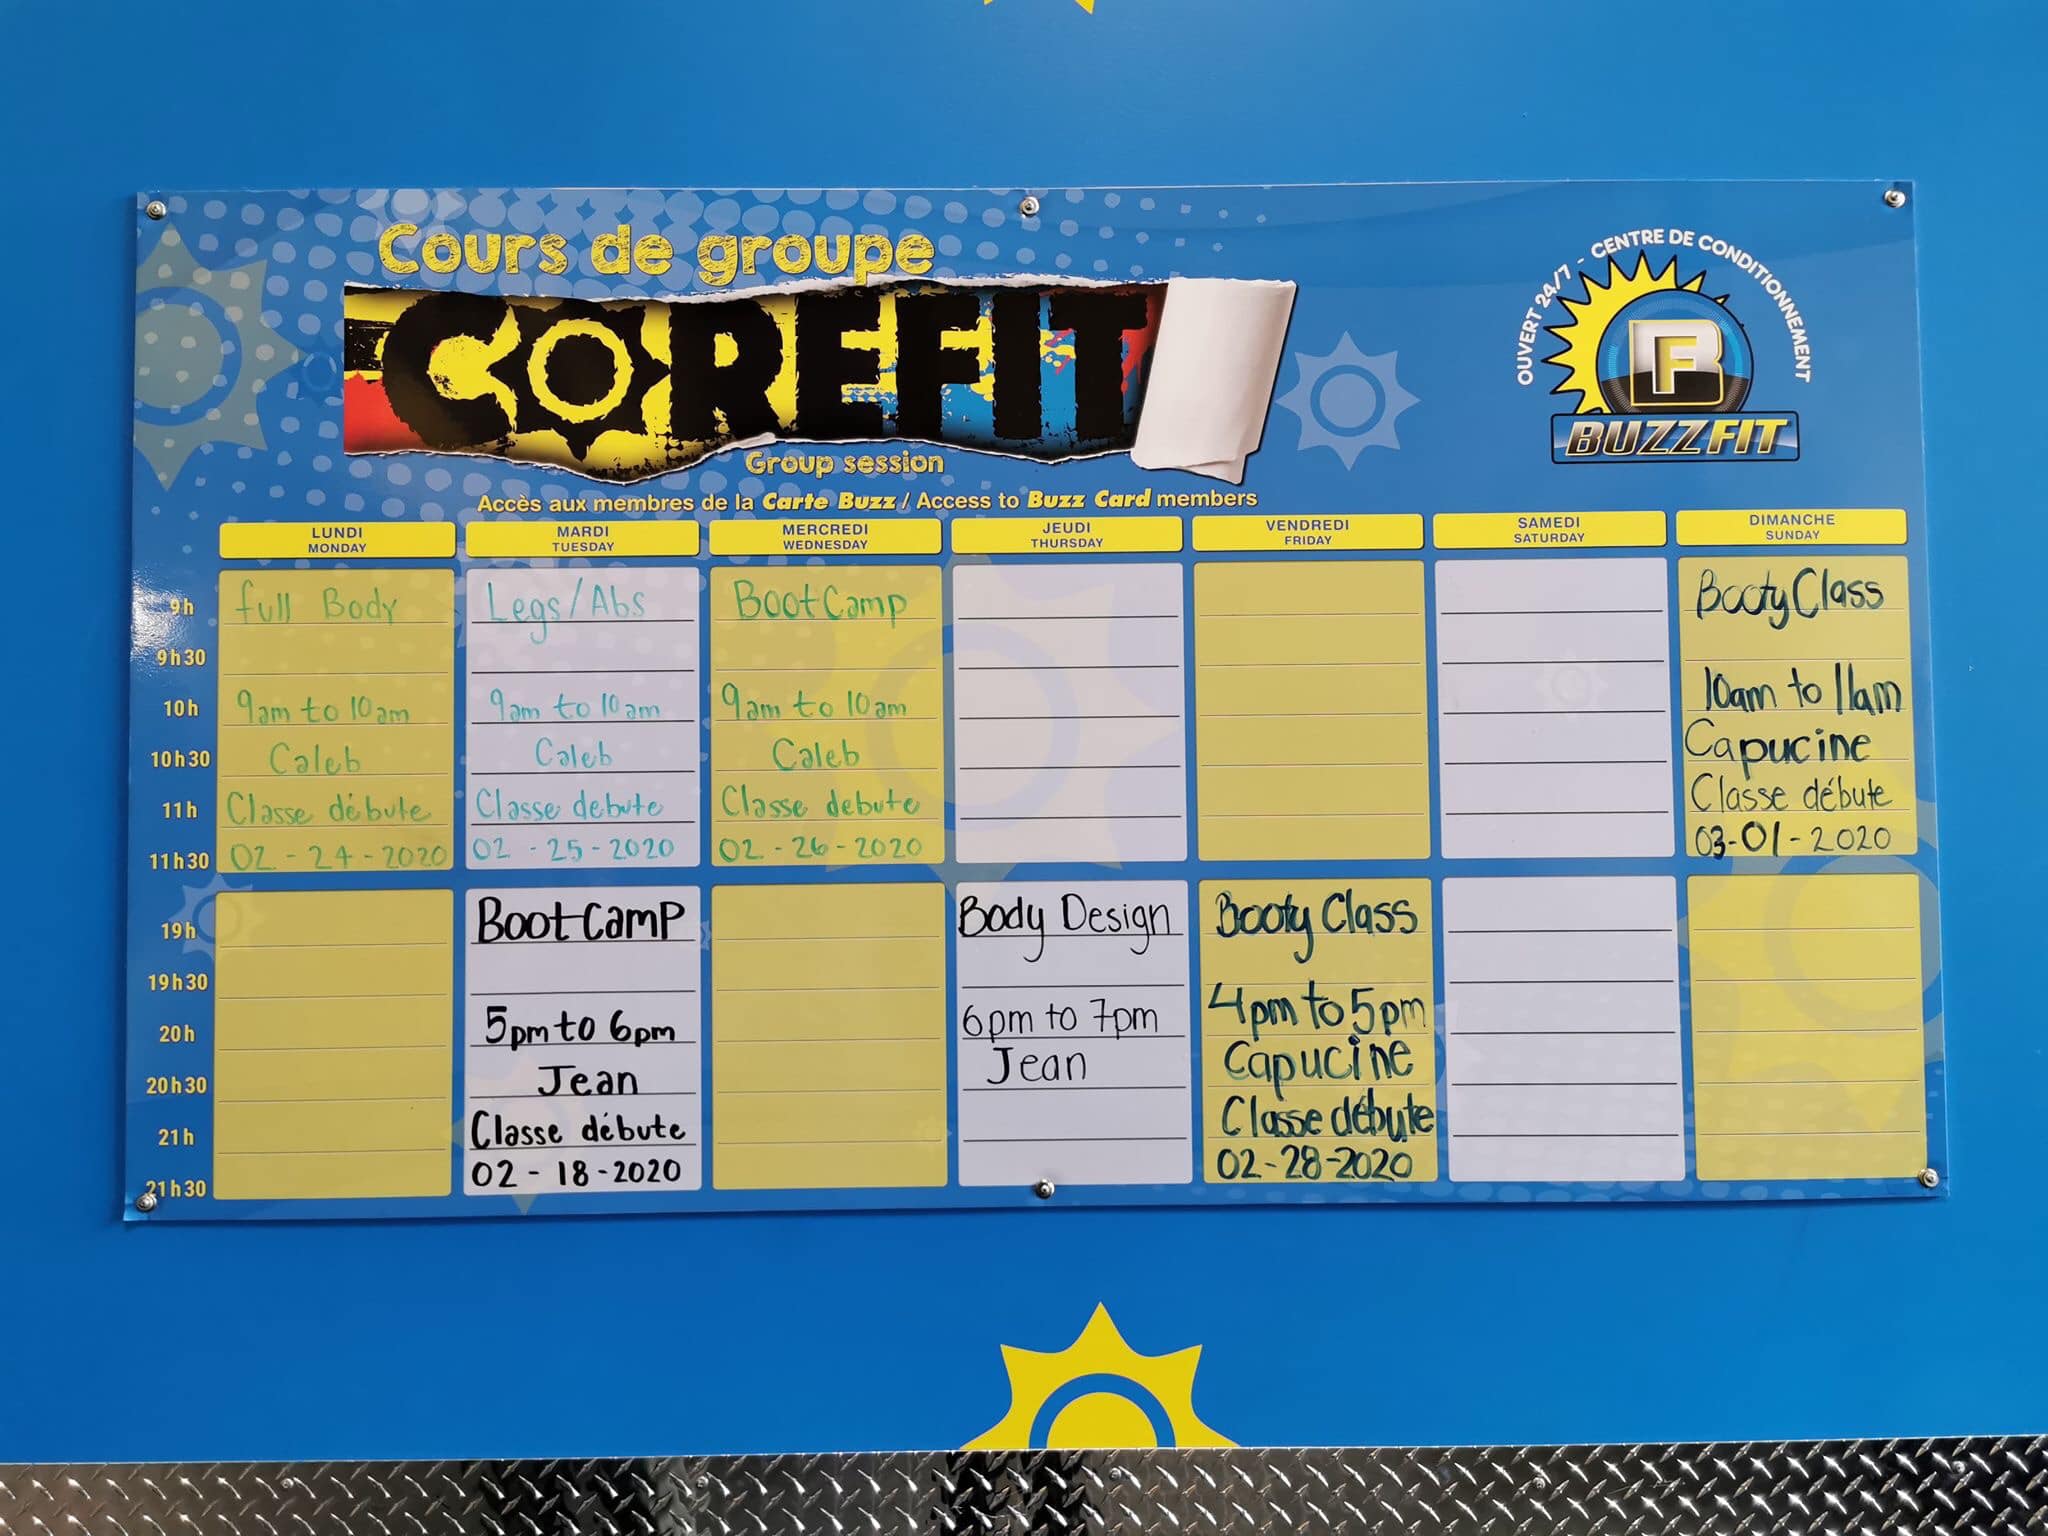 Cours de groupe
COREFIT
Group session
Accès aux membres de la Carte Buzz / Access to Buzz Card members
OUVERT 24/7 - CENTRE DE CONDITIONNEMENT
BF
BUZZFIT
LUNDI
MONDAY
MARDI
TUESDAY
MERCREDI
WEDNESDAY
JEUDI
THURSDAY
VENDREDI
FRIDAY
SAMEDI
SATURDAY
DIMANCHE
SUNDAY
9h
9h30
10h
10h30
11h
11h30
full Body
9am to 10am
Caleb
Classe débute
02-24-2020
Legs/Abs
9am to 10am
Caleb
Classe debute
02-25-2020
BootCamp
9am to 10am
Caleb
Classe debute
02-26-2020
Booty Class
10am to 11am
Capucine
Classe débute
03-01-2020
19h
19h30
20h
20h30
21h
21h30
BootCamp
5pm to 6pm
Jean
Classe débute
02-18-2020
Body Design
6pm to 7pm
Jean
Booty Class
4pm to 5pm
Capucine
Classe débute
02-28-2020